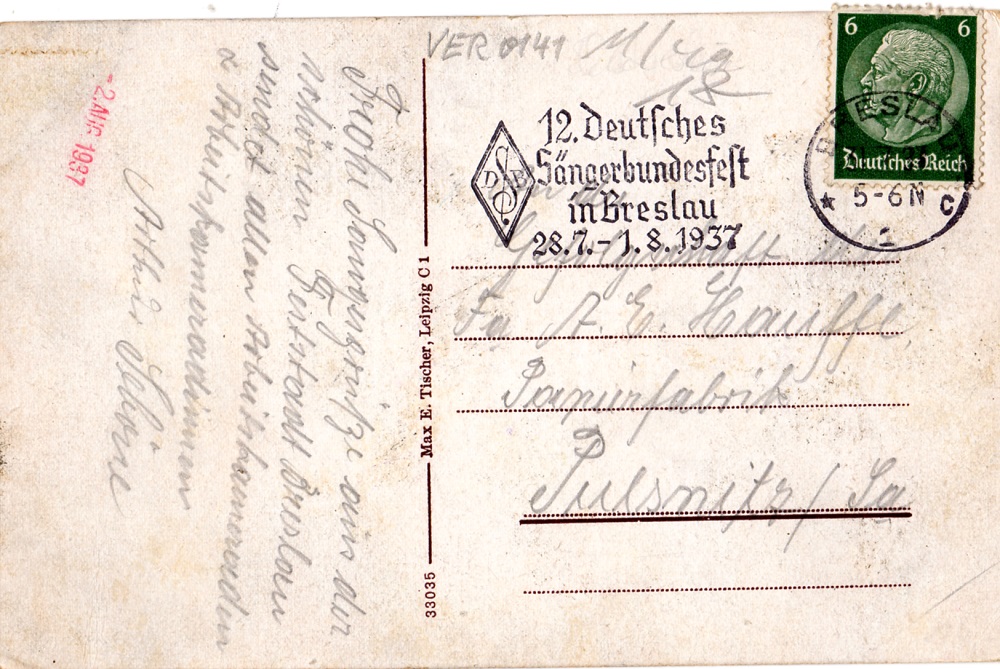 VER 0141
12. Deutsches
Sängerbundesfest
in Breslau
28.7.-1.8.1937
DSB
6 6
Deutsches Reich
BRESLAU
5-6 N
* C
1
-2. AUG 1937
Frohe Sängergrüße aus der
schönen Feststadt Breslau
sendet allen Arbeitskameraden
u. Arbeitskameradinnen
Arthur Schöne
Max E. Tischer, Leipzig C 1
33035
An die
Gefolgschaft der
Fa A. E. Hauffe,
Papierfabrik
Pulsnitz / Sa